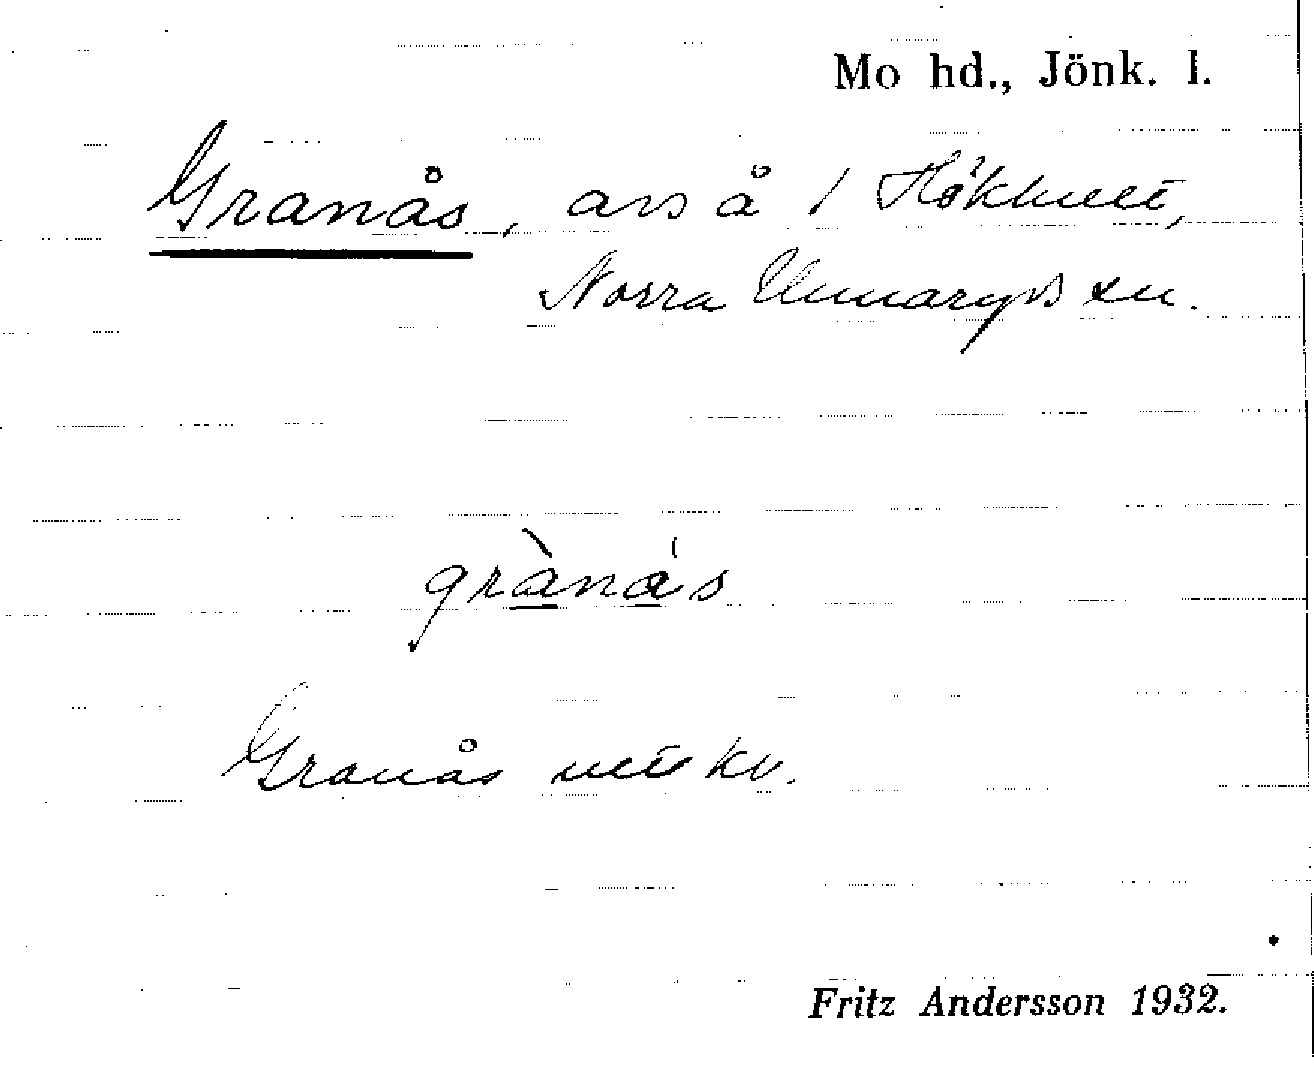 Mo hd., Jönk. l.
Granås, avs å 1 Hökhult,
Norra Unnaryds sn.
grànás
Granås utskv.
Fritz Andersson 1932.